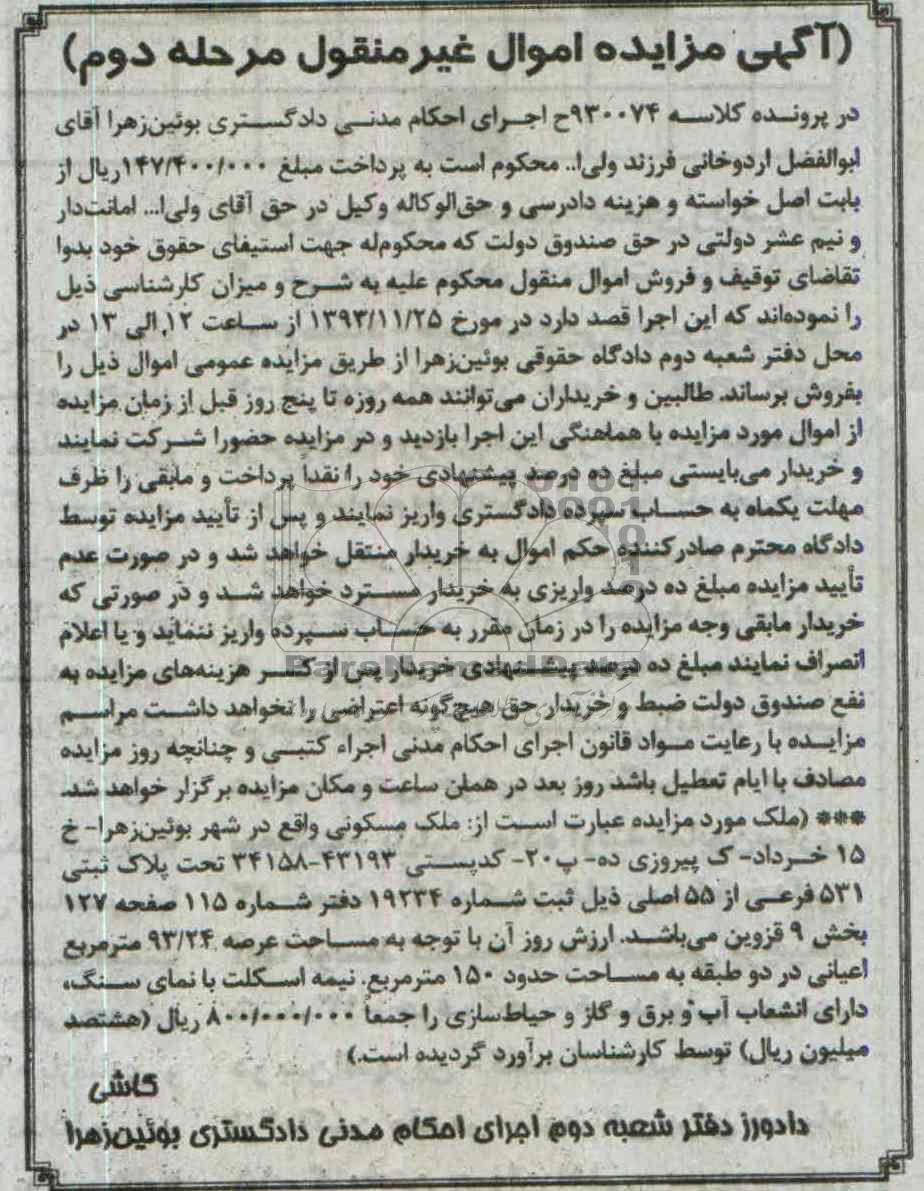 (آگهی مزایده اموال غیرمنقول مرحله دوم)
در پرونده کلاسه ۹۳۰۰۷۴ح اجرای احکام مدنی دادگستری بوئین‌زهرا آقای
ابوالفضل اردوخانی فرزند ولی‌ا.. محکوم است به پرداخت مبلغ ۱۴۷/۴۰۰/۰۰۰ریال از
بابت اصل خواسته و هزینه دادرسی و حق‌الوکاله وکیل در حق آقای ولی‌ا... امانت‌دار
و نیم عشر دولتی در حق صندوق دولت که محکوم‌له جهت استیفای حقوق خود بدوا
تقاضای توقیف و فروش اموال منقول محکوم علیه به شرح و میزان کارشناسی ذیل
را نموده‌اند که این اجرا قصد دارد در مورخ ۱۳۹۳/۱۱/۲۵ از ساعت ۱۲ الی ۱۳ در
محل دفتر شعبه دوم دادگاه حقوقی بوئین‌زهرا از طریق مزایده عمومی اموال ذیل را
بفروش برساند. طالبین و خریداران می‌توانند همه روزه تا پنج روز قبل از زمان مزایده
از اموال مورد مزایده با هماهنگی این اجرا بازدید و در مزایده حضورا شرکت نمایند
و خریدار می‌بایستی مبلغ ده درصد پیشنهادی خود را نقداً پرداخت و مابقی را ظرف
مهلت یکماه به حساب سپرده دادگستری واریز نمایند و پس از تأیید مزایده توسط
دادگاه محترم صادرکننده حکم اموال به خریدار منتقل خواهد شد و در صورت عدم
تأیید مزایده مبلغ ده درصد واریزی به خریدار مسترد خواهد شد و در صورتی که
خریدار مابقی وجه مزایده را در زمان مقرر به حساب سپرده واریز ننماید و یا اعلام
انصراف نمایند مبلغ ده درصد پیشنهادی خریدار پس از کسر هزینه‌های مزایده به
نفع صندوق دولت ضبط و خریدار حق هیچ‌گونه اعتراضی را نخواهد داشت مراسم
مزایده با رعایت مواد قانون اجرای احکام مدنی اجراء کتبی و چنانچه روز مزایده
مصادف با ایام تعطیل باشد روز بعد در همان ساعت و مکان مزایده برگزار خواهد شد.
*** (ملک مورد مزایده عبارت است از: ملک مسکونی واقع در شهر بوئین‌زهرا- خ
۱۵ خرداد- ک پیروزی ده- پ۲۰- کدپستی ۴۳۱۹۳-۳۴۱۵۸ تحت پلاک ثبتی
۵۳۱ فرعی از ۵۵ اصلی ذیل ثبت شماره ۱۹۲۳۴ دفتر شماره ۱۱۵ صفحه ۱۲۷
بخش ۹ قزوین می‌باشد. ارزش روز آن با توجه به مساحت عرصه ۹۳/۲۴ مترمربع
اعیانی در دو طبقه به مساحت حدود ۱۵۰ مترمربع. نیمه اسکلت با نمای سنگ،
دارای انشعاب آب و برق و گاز و حیاط‌سازی را جمعاً ۸۰۰/۰۰۰/۰۰۰ ریال (هشتصد
میلیون ریال) توسط کارشناسان برآورد گردیده است.)
کاشی
دادورز دفتر شعبه دوم اجرای احکام مدنی دادگستری بوئین‌زهرا